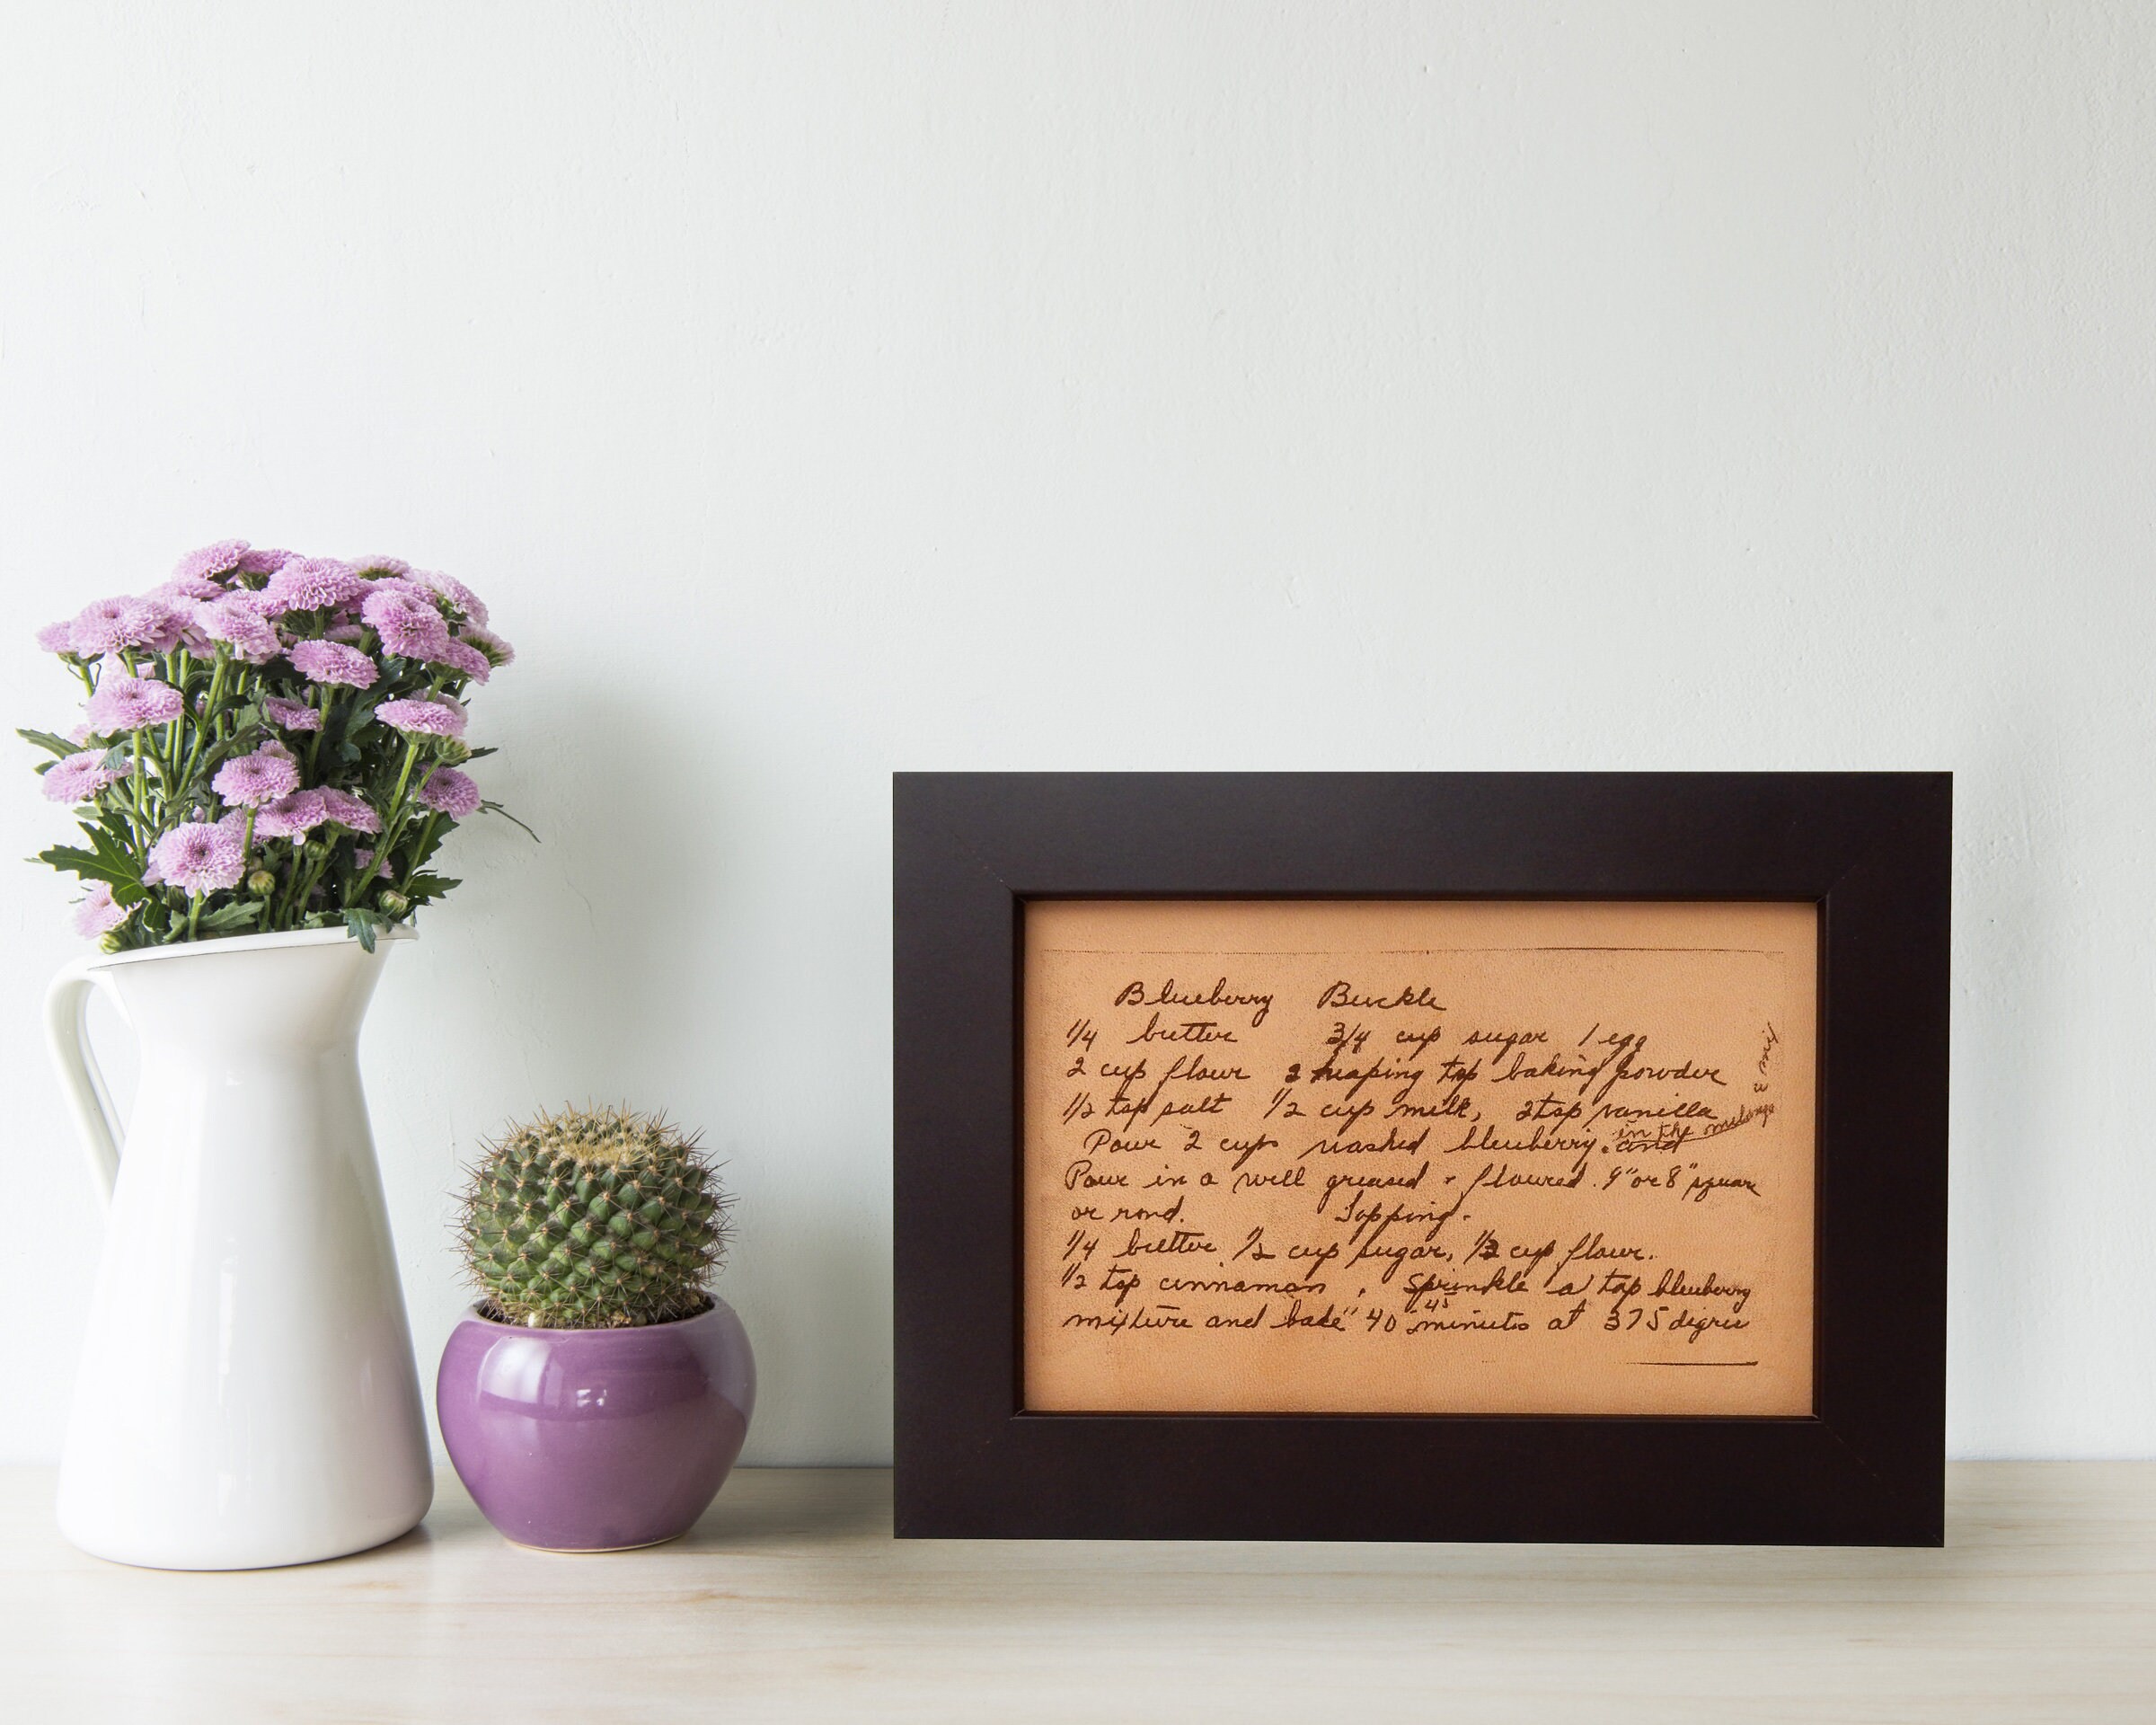 Blueberry Buckle
1/4 butter 3/4 cup sugar 1 egg
2 cup flour 2 heaping tsp baking powder
1/2 tsp salt 1/2 cup milk, 2 tsp vanilla
Pour 2 cups washed blueberry. and in the melange
Pour in a well greased + floured. 9" or 8" square
or rond. Topping -
1/4 butter, 1/2 cup sugar, 1/3 cup flour.
1/2 tsp cinnamon, Sprinkle a top blueberry
mixture and bake" 40 45 minutes at 375 degree